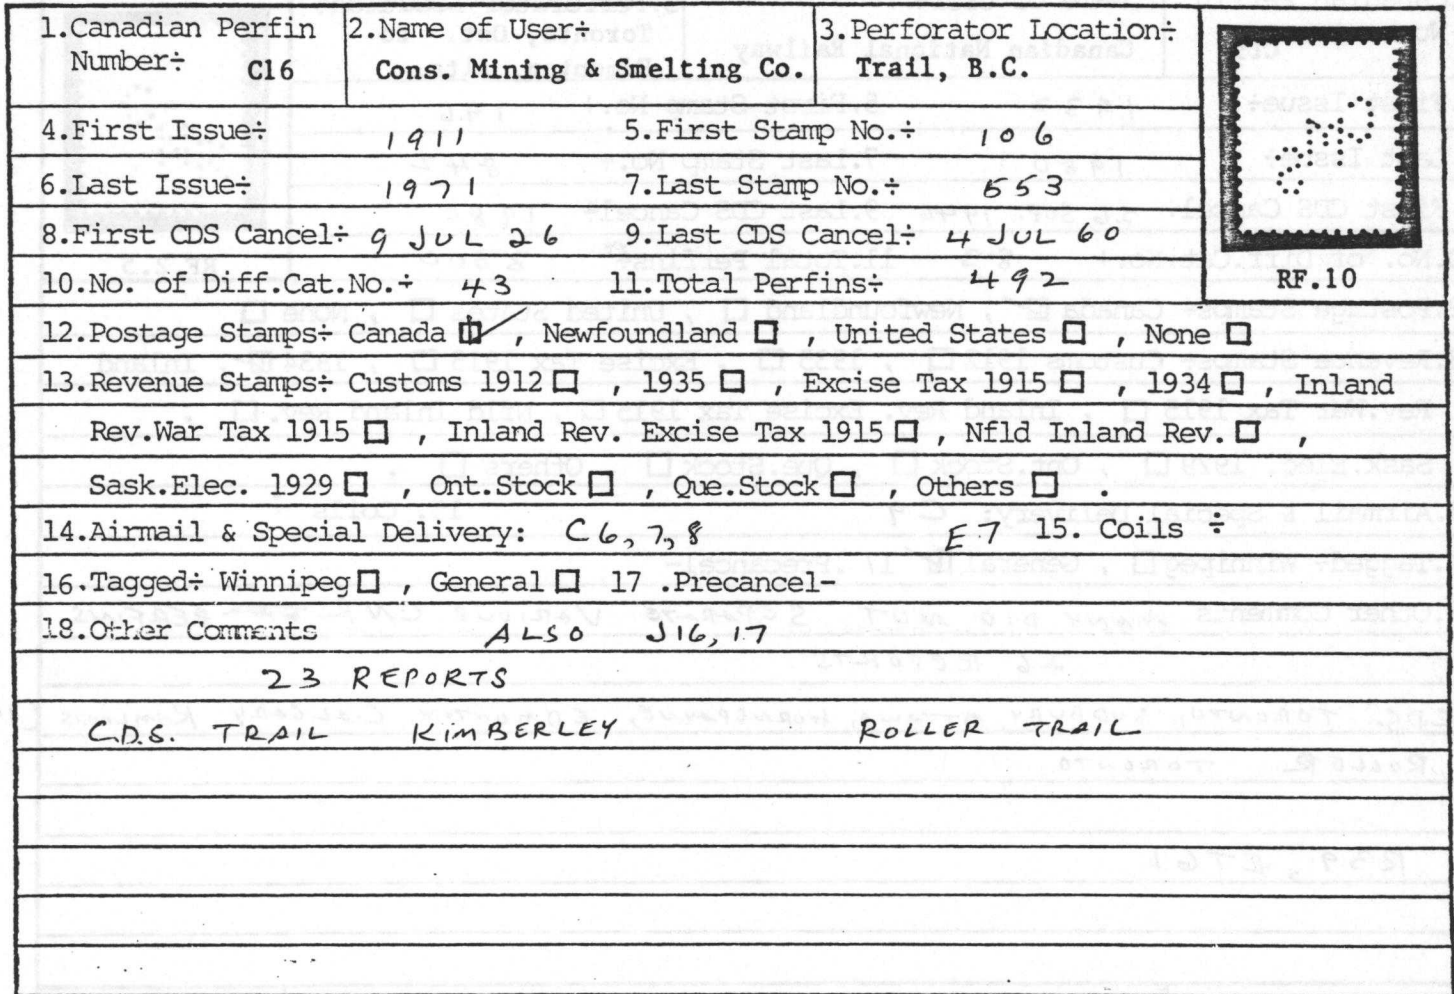 1.Canadian Perfin Number÷ C16
2.Name of User÷
Cons. Mining & Smelting Co.
3.Perforator Location÷
Trail, B.C.
4.First Issue÷ 1911 5.First Stamp No.÷ 106
6.Last Issue÷ 1971 7.Last Stamp No.÷ 553
8.First CDS Cancel÷ 9 JUL 26 9.Last CDS Cancel÷ 4 JUL 60
10.No. of Diff.Cat.No.÷ 43 11.Total Perfins÷ 492
RF.10
12.Postage Stamps÷ Canada ☑ , Newfoundland ☐ , United States ☐ , None ☐
13.Revenue Stamps÷ Customs 1912 ☐ , 1935 ☐ , Excise Tax 1915 ☐ , 1934 ☐ , Inland
Rev.War Tax 1915 ☐ , Inland Rev. Excise Tax 1915 ☐ , Nfld Inland Rev. ☐ ,
Sask.Elec. 1929 ☐ , Ont.Stock ☐ , Que.Stock ☐ , Others ☐ .
14.Airmail & Special Delivery: C6,7,8 E7 15. Coils ÷
16.Tagged÷ Winnipeg ☐ , General ☐ 17 .Precancel-
18.Other Comments ALSO J16,17
23 REPORTS
C.D.S. TRAIL KIMBERLEY ROLLER TRAIL